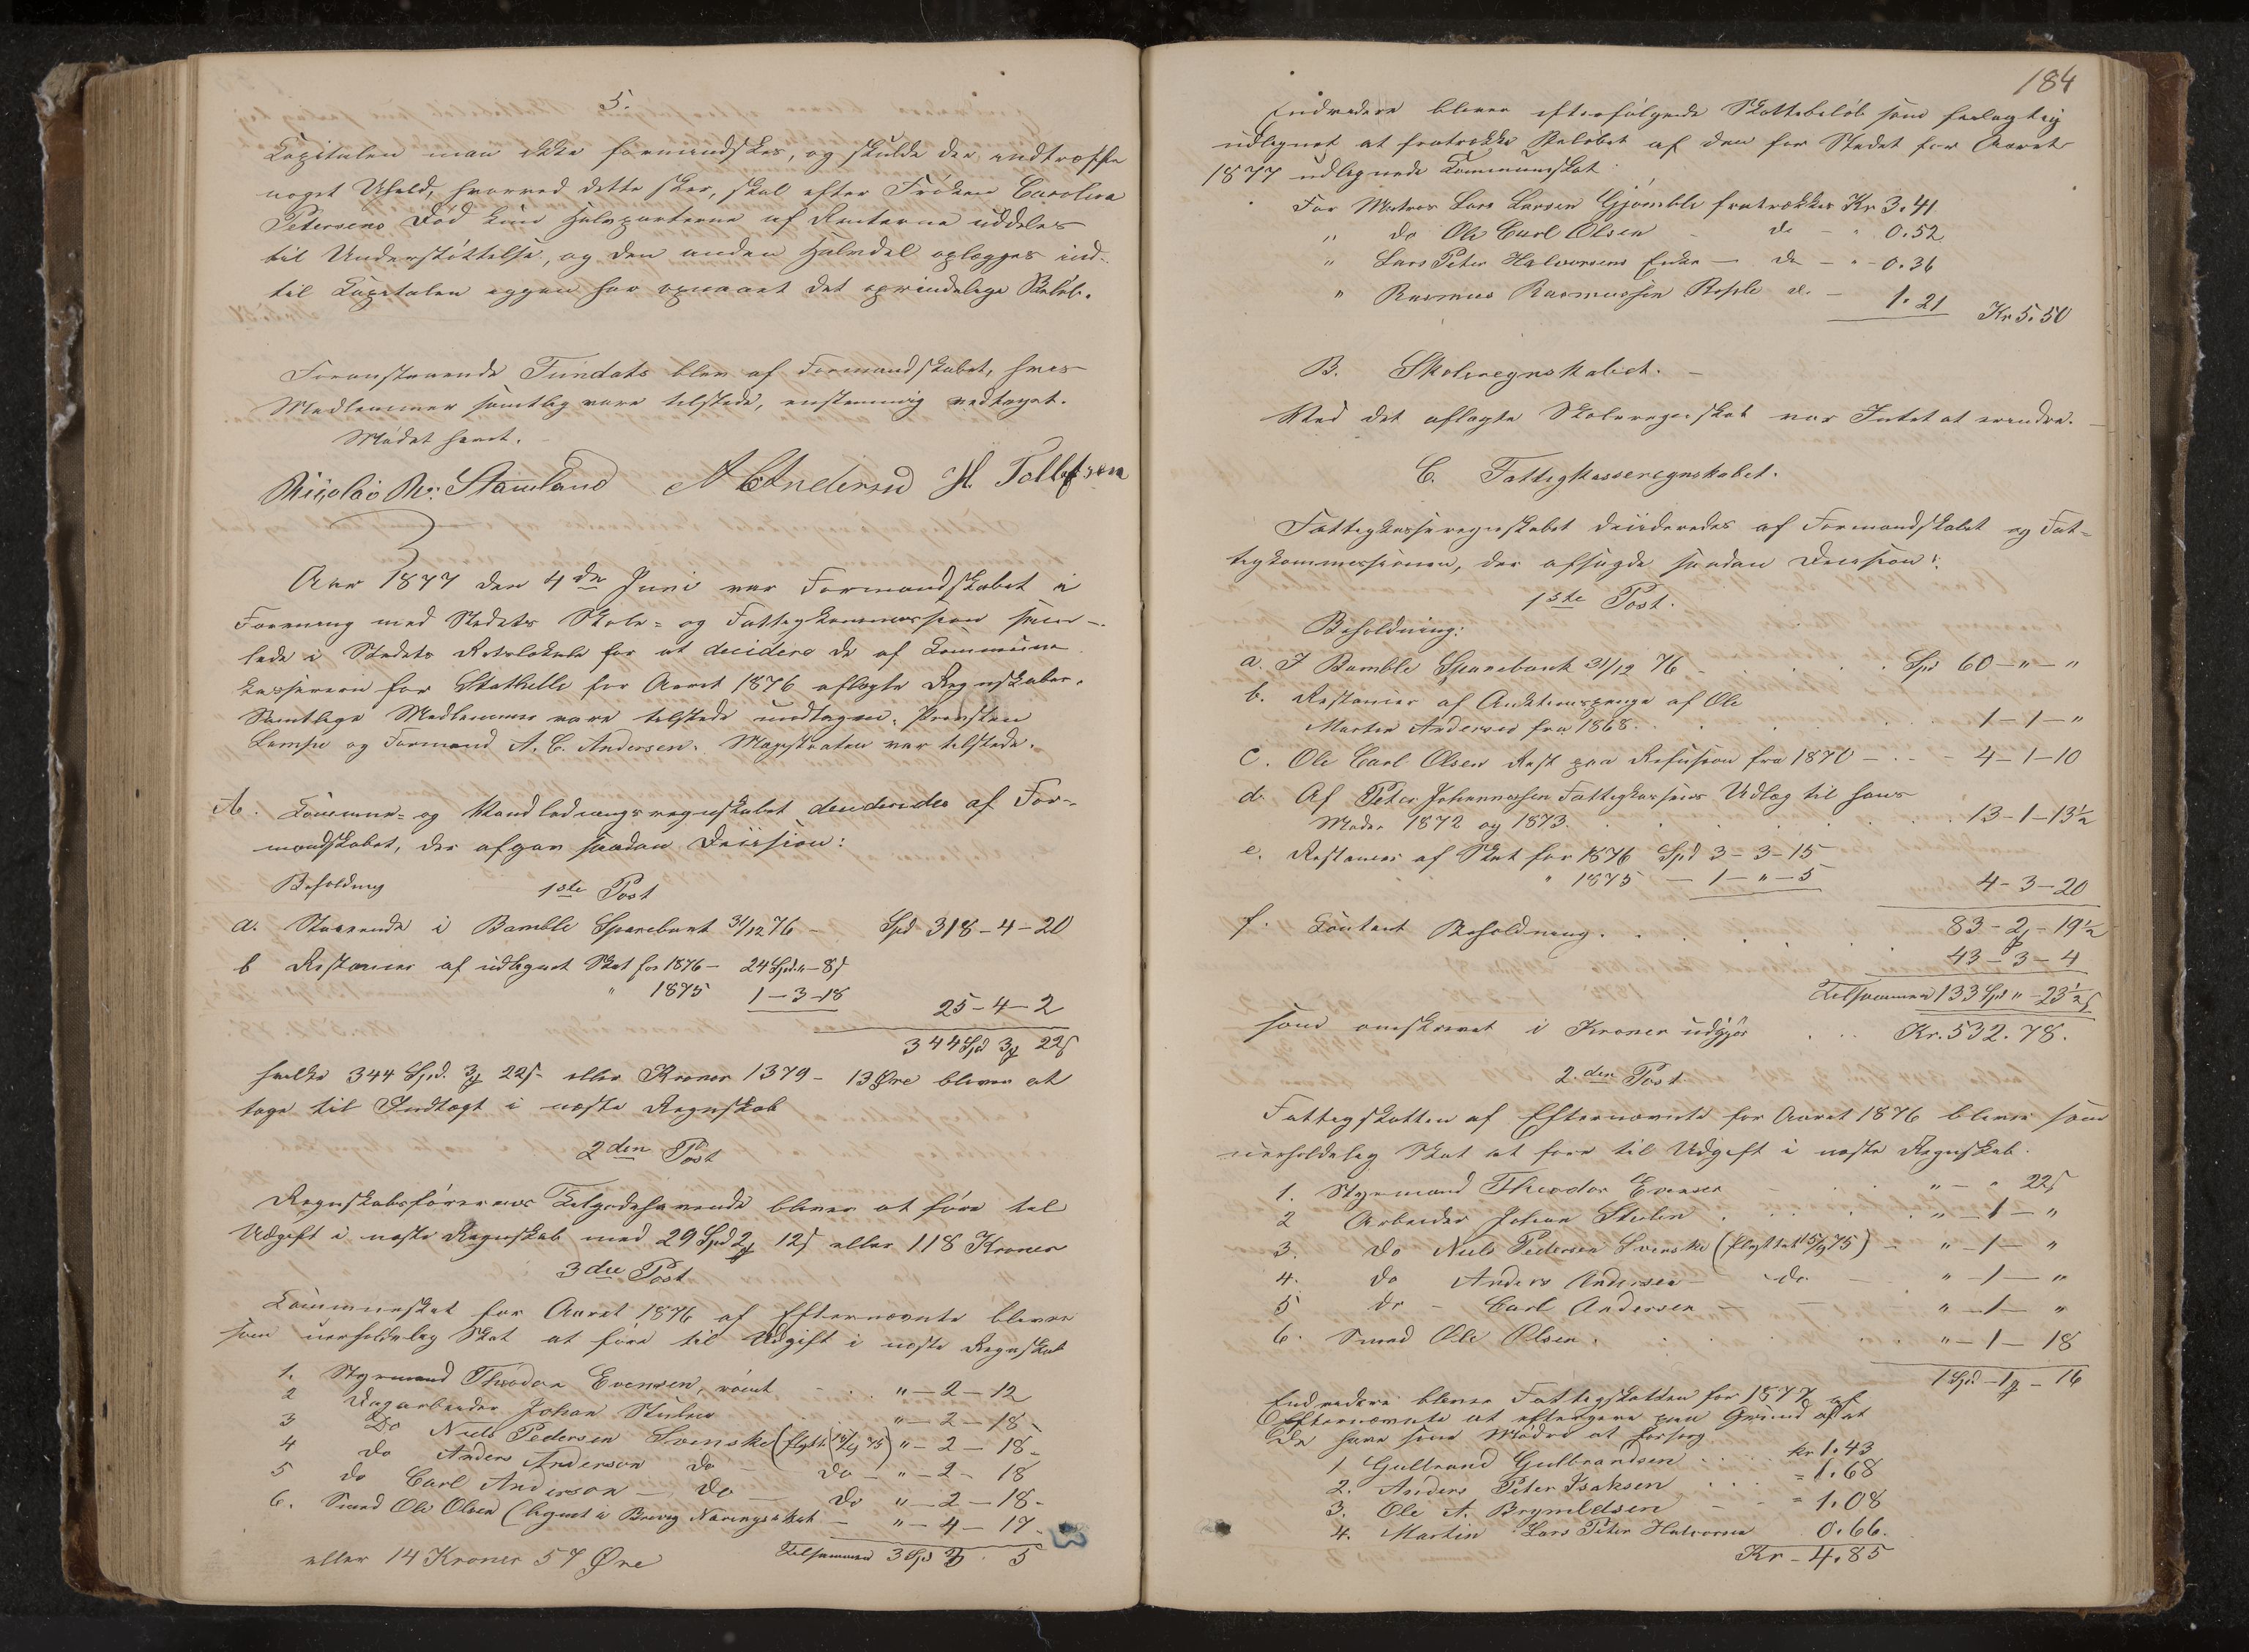 5.
Kapitalen maa ikke formindskes, og skulde der indtræffe
noget Uheld, hvorved dette sker, skal efter Frøken Caroline
Petersens Død kun Halvparterne af Renterne uddeles
til Understøttelse, og den anden Halvdel oplægges ind-
til Kapitalen iggjen har opnaaet det oprindelige Beløb.
Foranstaaende Fundats blev af Formandskabet, hvis
Medlemmer samtlig vare tilstede, enstemmig vedtaget.
Mødet hævet.
Nicolai Stamland A C Andersen H. Tollefsen
Aar 1877 den 4de Juni var Formandskabet i
Forening med Stedets Skole- og Fattigkommission sam-
lede i Stedets Retslokale for at decidere de af Kommune
kassereren for Stathelle for Aaret 1876 aflagte Regnskaber.
Samtlige Medlemmer vare tilstede undtagen Provsten
Lampe og Formand A. C. Andersen. Magistraten var tilstede.
A. Kommune- og Vandledningsregnskabet decideredes af For-
mandskabet, der afgav saadan Decision:
Beholdning 1ste Post
a. Staaende i Bamble Sparebank 31/12 76 - Spd 318-4-20
b Restancer af udlignet Skat for 1876 - 24 Spd " - 8 s
" 1875 1-3-18
25-4-2
344 Spd 3 22 s
hvilke 344 Spd. 3 22 s. eller Kroner 1379 - 13 Øre bliver at
tage til Indtægt i næste Regnskab
2den Post
Regnskabsførerens Tilgodehavende bliver at føre til
Udgift i næste Regnskab med 29 Spd 2 12 s eller 118 Kroner
3die Post
Kommuneskat for Aaret 1876 af Efternævnte bliver
som uerholdelig Skat at føre til Udgift i næste Regnskab
1. Styrmand Theodor Evensen, rømt - . . " - 2 - 12
2 Dagarbeider Johan " - 2 - 18 -
3 Do Niels Pedersen Svenske (flyttet 15/9 75) " - 2 - 18 -
4 do Anders Anderson do - do - " - 2 - 18
5 do Carl Anderson - do - do " - 2 - 18 -
6. Smed Ole Olsen (lignet i Brevig Næringsskat - " - 4 - 17 -
Tilsammen 3 Spd 5
eller 14 Kroner 57 Øre
184
Endvidere bliver efterfølgende Skattebeløb som feilagtig
udlignet at fratrække Beløbet af den for Stedet for Aaret
1877 udlignede Kommuneskat
For Matros Lars Larsen Gjømble fratrækkes Kr 3.41
" do Ole Carl Olsen - do - " 0.52
" Lars Peter Halvorsens Enke - do - " - 0.36
" Rasmus Rasmussen do - 1.21 Kr 5.50
B. Skoleregnskabet. -
Ved det aflagte Skoleregnskab var Intet at erindre.
C. Fattigkasseregnskabet.
Fattigkasseregnskabet decideredes af Formandskabet og Fat-
tigkommissionen, der afsagde saadan Decision:
1ste Post.
Beholdning:
a. I Bamble Sparebank 31/12 76 - . . . Spd 60 - " - "
b. Restancer af Auktionspenge af Ole
Martin Andersen fra 1868. . . . . 1 - 1 - "
c. Ole Carl Olsen Rest paa Refusion fra 1870 - . . - 4 - 1 - 10
d. Af Peter Johannessen Fattigkassens Udlæg til hans
Moder 1872 og 1873. . . . . . 13 - 1 - 13½
e. Restancer af Skat for 1876 Spd 3 - 3 - 15
" 1875 - 1 - " - 5
4 - 3 - 20
83 - 2 - 19½
f. Contant Beholdning. . . . . 43 - 3 - 4
Tilsammen 133 Spd " - 23½ s
som omskrevet i Kroner udgjør . . Kr. 532.78.
2.den Post.
Fattigskatten af Efternævnte for Aaret 1876 bliver som
uerholdelig Skat at føre til Udgift i næste Regnskab.
1. Styrmand Theodor Evensen - . . " - " 22 s
2 Arbeider Johan . . . . " - 1 - "
3. do Niels Pedersen Svenske (flyttet 15/9 75) - " - 1 - "
4. do Anders Andersen - do - " - 1 - "
5 do - Carl Andersen - - " - 1 - "
6. Smed Ole Olsen. . . . . " - 1 - 18
1 Spd - 1 - 16
Endvidere bliver Fattigskatten for 1877 af
Efternævnte at eftergive paa Grund af at
de have sine Mødre at forsørge
1. Gulbrand Gulbrandsen . . . . kr 1.43
2. Anders Peter Isaksen . . . = 1.68
3. Ole A. Brynildsen - - = 1.08
4. Martin Lars Peter Halvorsen 0.66.
Kr - 4.85